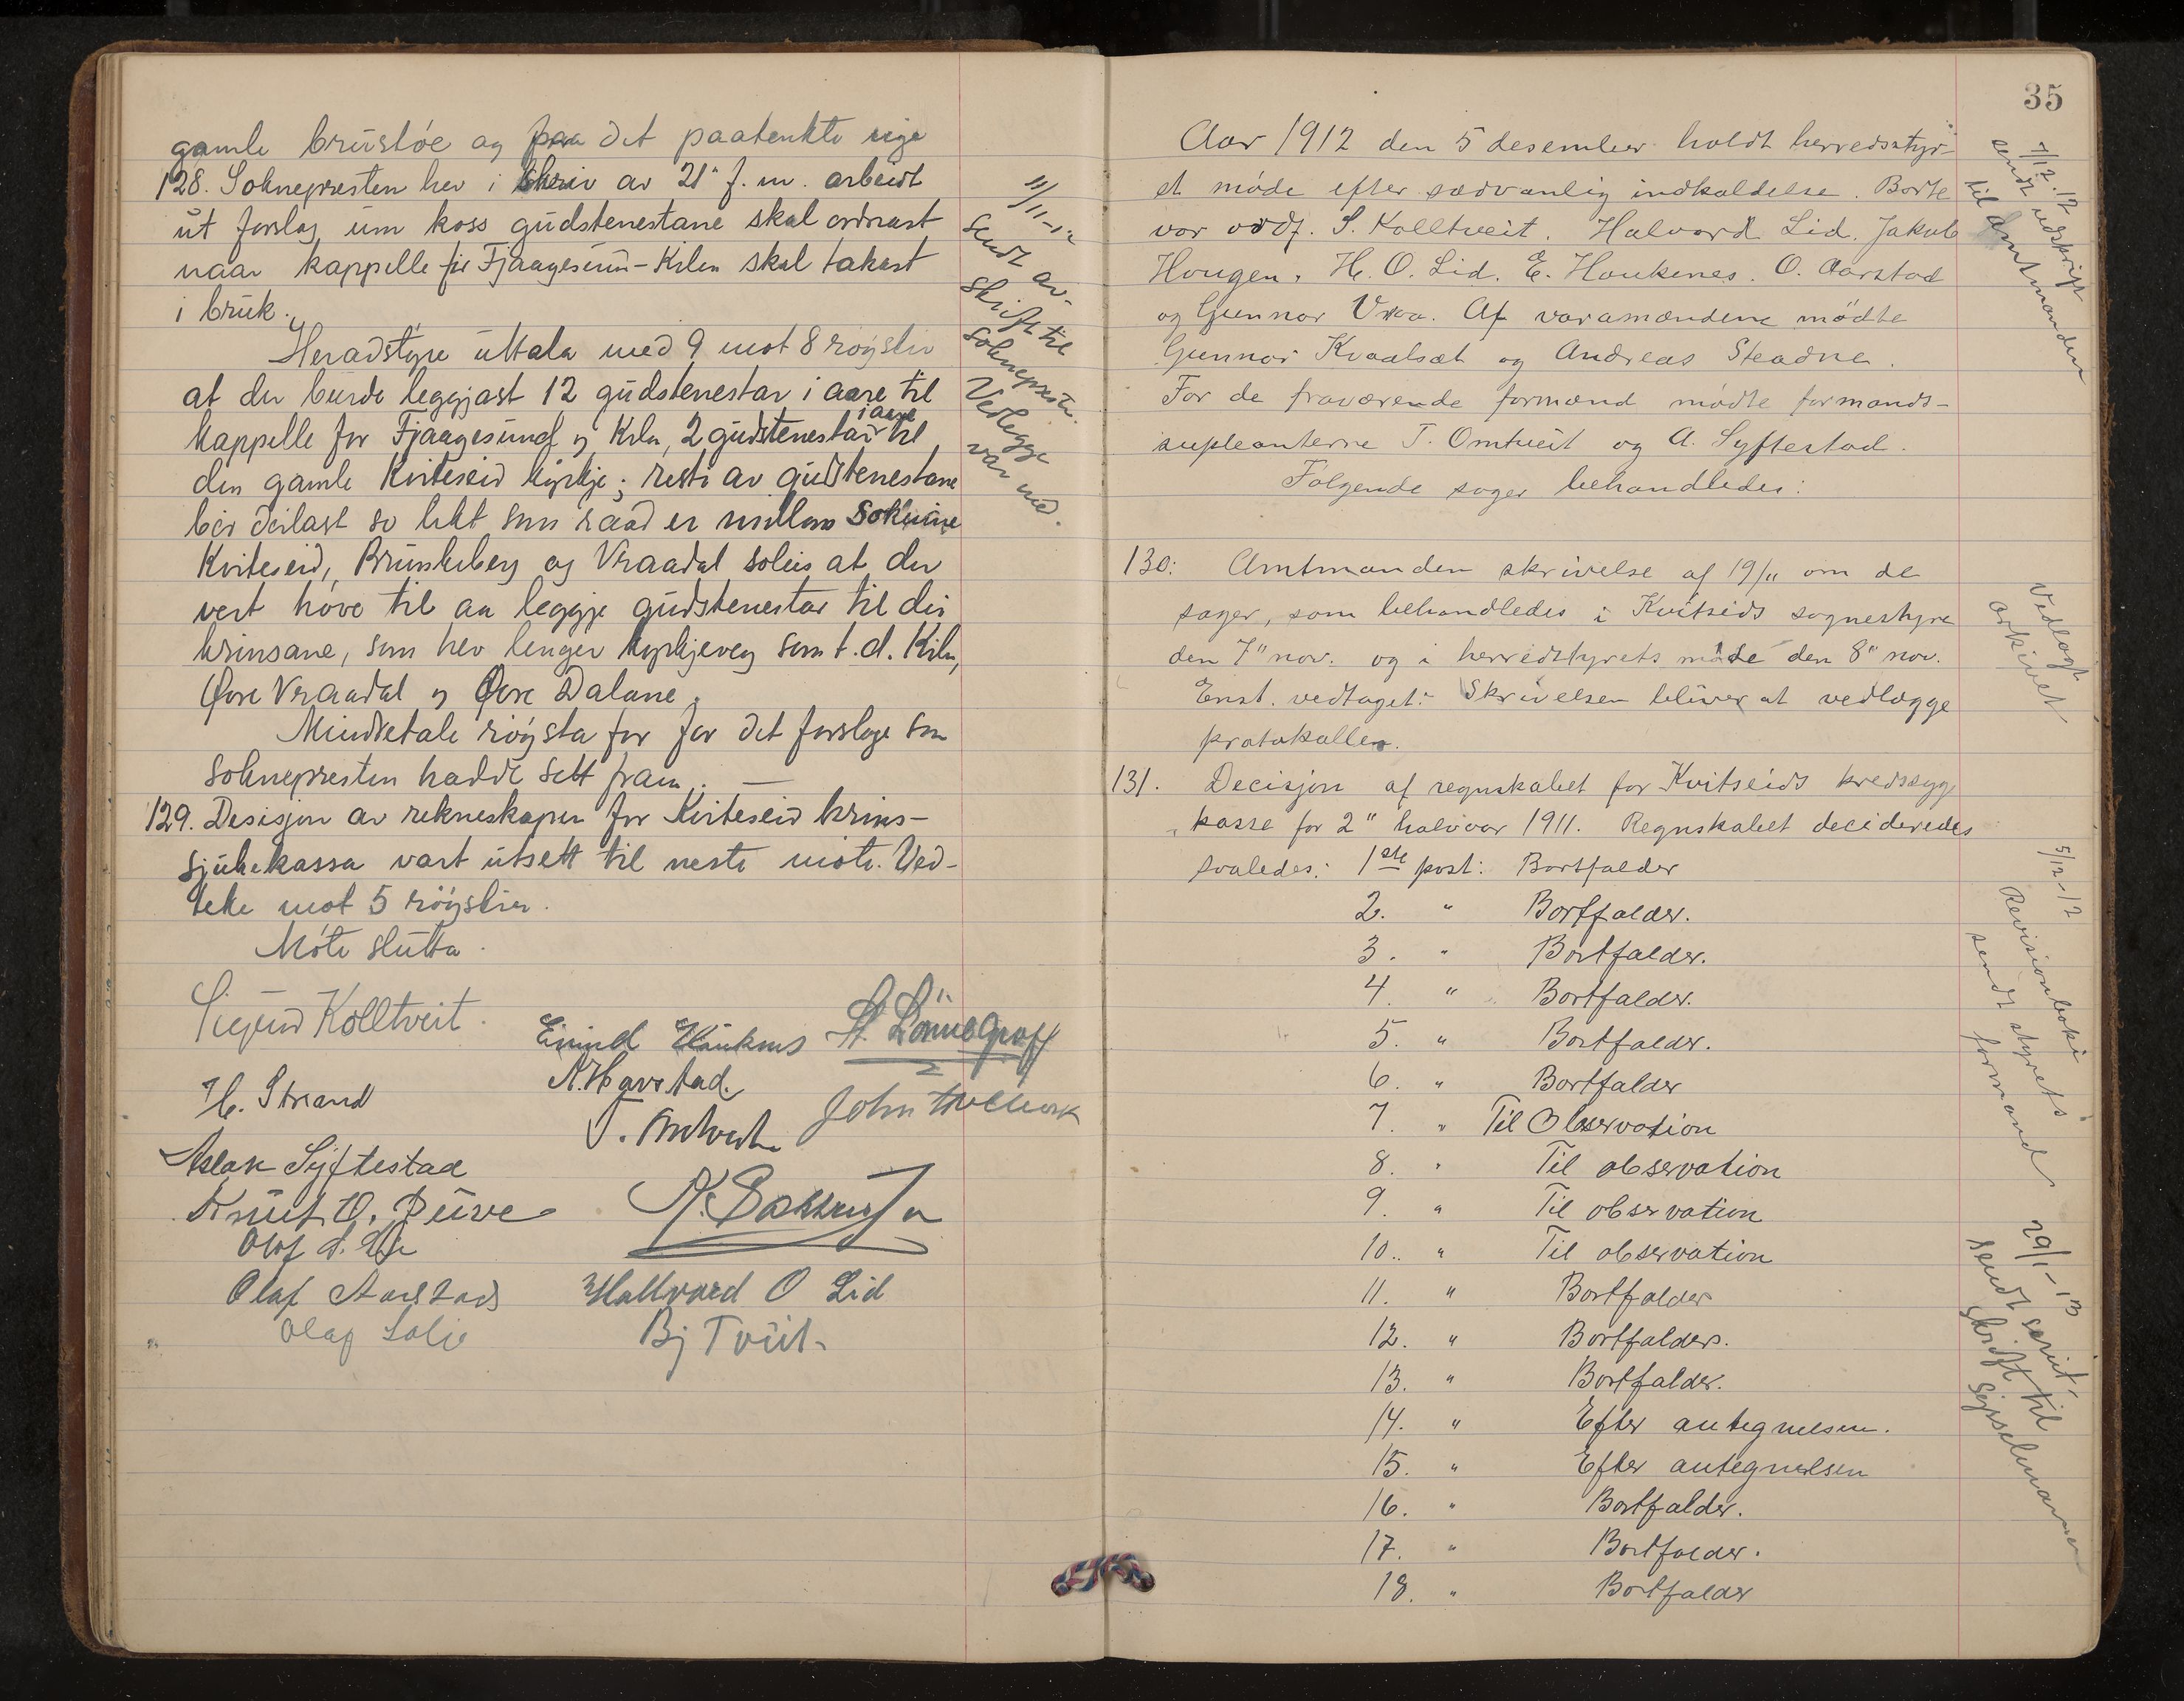 gamle brustøe og paa det paatenkte nye
128. Soknepresten hev i skriv av 21" f. m. arbeidt
ut forslag um koss gudstenestane skal ordnast
naar kappelle for Fjaagesund-Kilen skal takast
i bruk.
Heradstyre uttala med 9 mot 8 røyster
at der burde leggjast 12 gudstenestar i aare til
kappelle for Fjaagesund og Kiln, 2 gudstenestar i aare til
den gamle Kviteseid kyrkje; reste av gudstenestane
bør deilast so likt som raad er millom soknine
Kviteseid, Brunkeberg og Vraadal soleis at der
vert høve til aa leggje gudstenestar til dei
krinsane, som hev lenger kyrkjeveg som t.d. Kiln,
Øvre Vraadal og Øvre Dalane.
Mindretale røysta for for det forslage som
soknepresten hadde sett fram. —
129. Desisjon av rekneskapen for Kviteseid krins-
sjukekassa vart utsett til neste møte. Ved-
teke mot 5 røyster.
Møte slutta.
11/11-12
Sendt av-
skrift til
Soknepresten.
Vedlegge
var med.
Sigurd Kolltveit.
Eivind Haukenes
H. Strand
N. Haarstad
Aslak Syftestad
Knut O. Juve
Olaf Aarstad
Hallvard O Lid
Olaf Lolie
Bj Tveit.
35
Aar 1912 den 5 desember holdt herredsstyr-
et møde efter sædvanlig indkaldelse. Borte
var ordf. S. Kolltveit. Halvard Lid. Jakob
Hougen. H. O. Lid. E. Haukenes. O. Aarstad
og Gunnar Vraa. Af varamændene mødte
Gunnar Kvaalsæt og Andreas Steadne.
For de fraværende formænd mødte formands-
supleanterne T. Omtveit og A. Syftestad.
Følgende sager behandledes:
7/12.12
sendt udskrift
til Amtmanden
130: Amtmanden skrivelse af 19/11 om de
sager, som behandledes i Kvitseids sognestyre
den 7" nov. og i herredstyrets møde den 8" nov.
Enst. vedtaget: Skrivelsen bliver at vedlægge
protokollen.
Vedlagt
arkivet
131. Decisjon af regnskabet for Kvitseids kredssyge
kasse for 2" halvaar 1911. Regnskabet decideredes
saaledes: 1ste post: Bortfalder
2. " Bortfalder.
3. " Bortfalder.
4. " Bortfalder.
5. " Bortfalder.
6. " Bortfalder
7. " Til Observation
8. " Til observation
9. " Til observation
10. " Til observation
11. " Bortfalder
12. " Bortfalder.
13. " Bortfalder.
14. " Efter antegnelsen.
15. " Efter antegnelsen
16. " Bortfalder.
17. " Bortfalder.
18. " Bortfalder
5/12-12
Revisionboki
sendt styrets
formand
29/1-13
sendt
skrift til